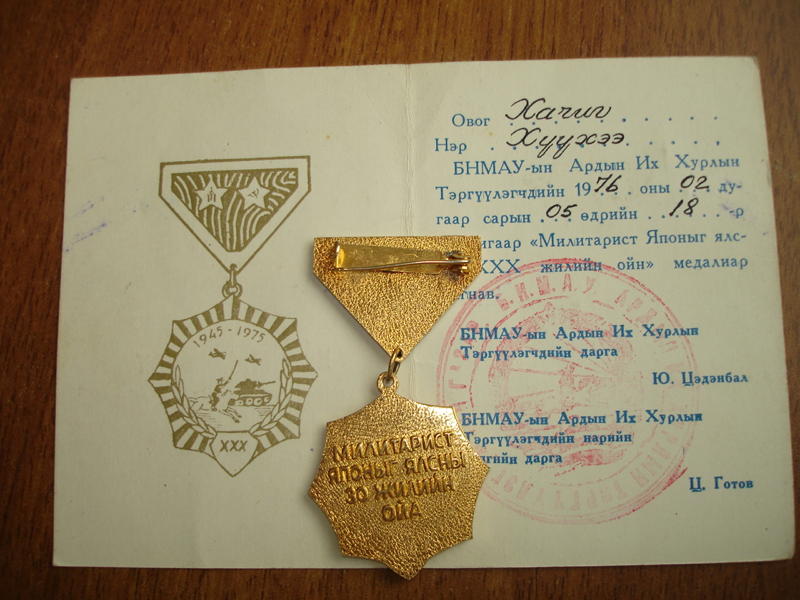 1945-1975
XXX
МИЛИТАРИСТ
ЯПОНЫГ ЯЛСНЫ
30 ЖИЛИЙН
ОЙД
Овог Хачиг
Нэр Хүүхээ
БНМАУ-ын Ардын Их Хурлын
Тэргүүлэгчдийн 1976 оны 02 ду-
гаар сарын 05 өдрийн 18 -р
«Милитарист Японыг ялс-
XXX жилийн ойн» медалиар
БНМАУ-ын Ардын Их Хурлын
Тэргүүлэгчдийн дарга
Ю. Цэдэнбал
БНМАУ-ын Ардын Их Хурлын
Тэргүүлэгчдийн нарийн
дарга
Ц. Готов